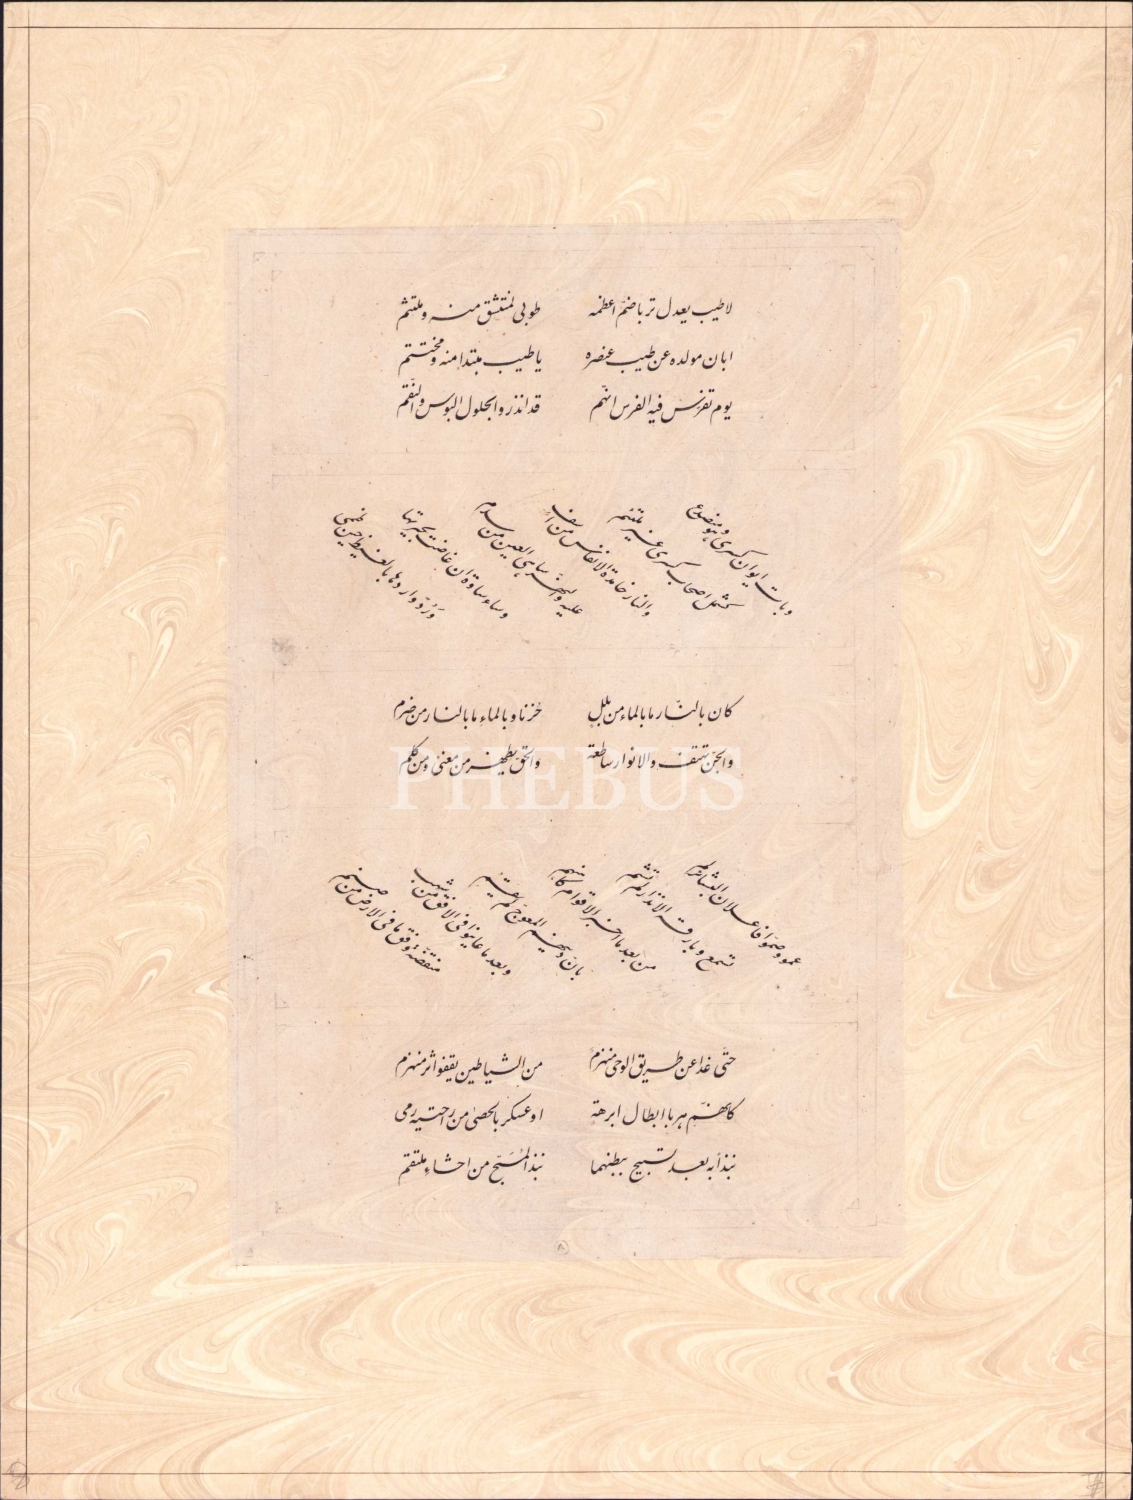 لاطيب يعدل ترباضمّ اعظمه طوبى لمنتشق منه وملتثم
ابان مولده عن طيب عنصره ياطيب مبتدا منه ومختتم
يوم تفرّس فيه الفرس انهّم قد انذروا بحلول البوس والنّقم
وبات ايوان كسرى وهو منصدع
كشمل اصحاب كسرى غير ملتئم
والنار خامدة الانفاس من اسف
عليه والنّهر ساهى العين من سدم
وساء ساوة ان غاضت بحيرتها
ورُدّ واردها بالغيظ حين ظمى
كان بالنّار مابالماء من بلل حُزنا وبالماء مابالنار من ضرم
والجنّ تهتف والانوار ساطعة والحقّ يظهر من معنىً ومن كلم
PHEBUS
عموا وصمّوا فاعلان البشائر لم
تسمع وبارقة الانذار لم تشم
من بعد ما اخبر الاقوام كاهنهم
بانّ دينهم المعوجّ لم يقم
وبعد ما عاينوا فى الافق من شهب
منقضّة وفق ما فى الارض من صنم
حتّى غدا عن طريق الوحى منهزم من الشياطين يقفوا اثر منهزم
كانّهم هربا ابطال ابرهة او عسكر بالحصى من راحتيه رمى
نبذا به بعد تسبيح ببطنهما نبذ المُسَبّح من احشاء ملتقم
٨